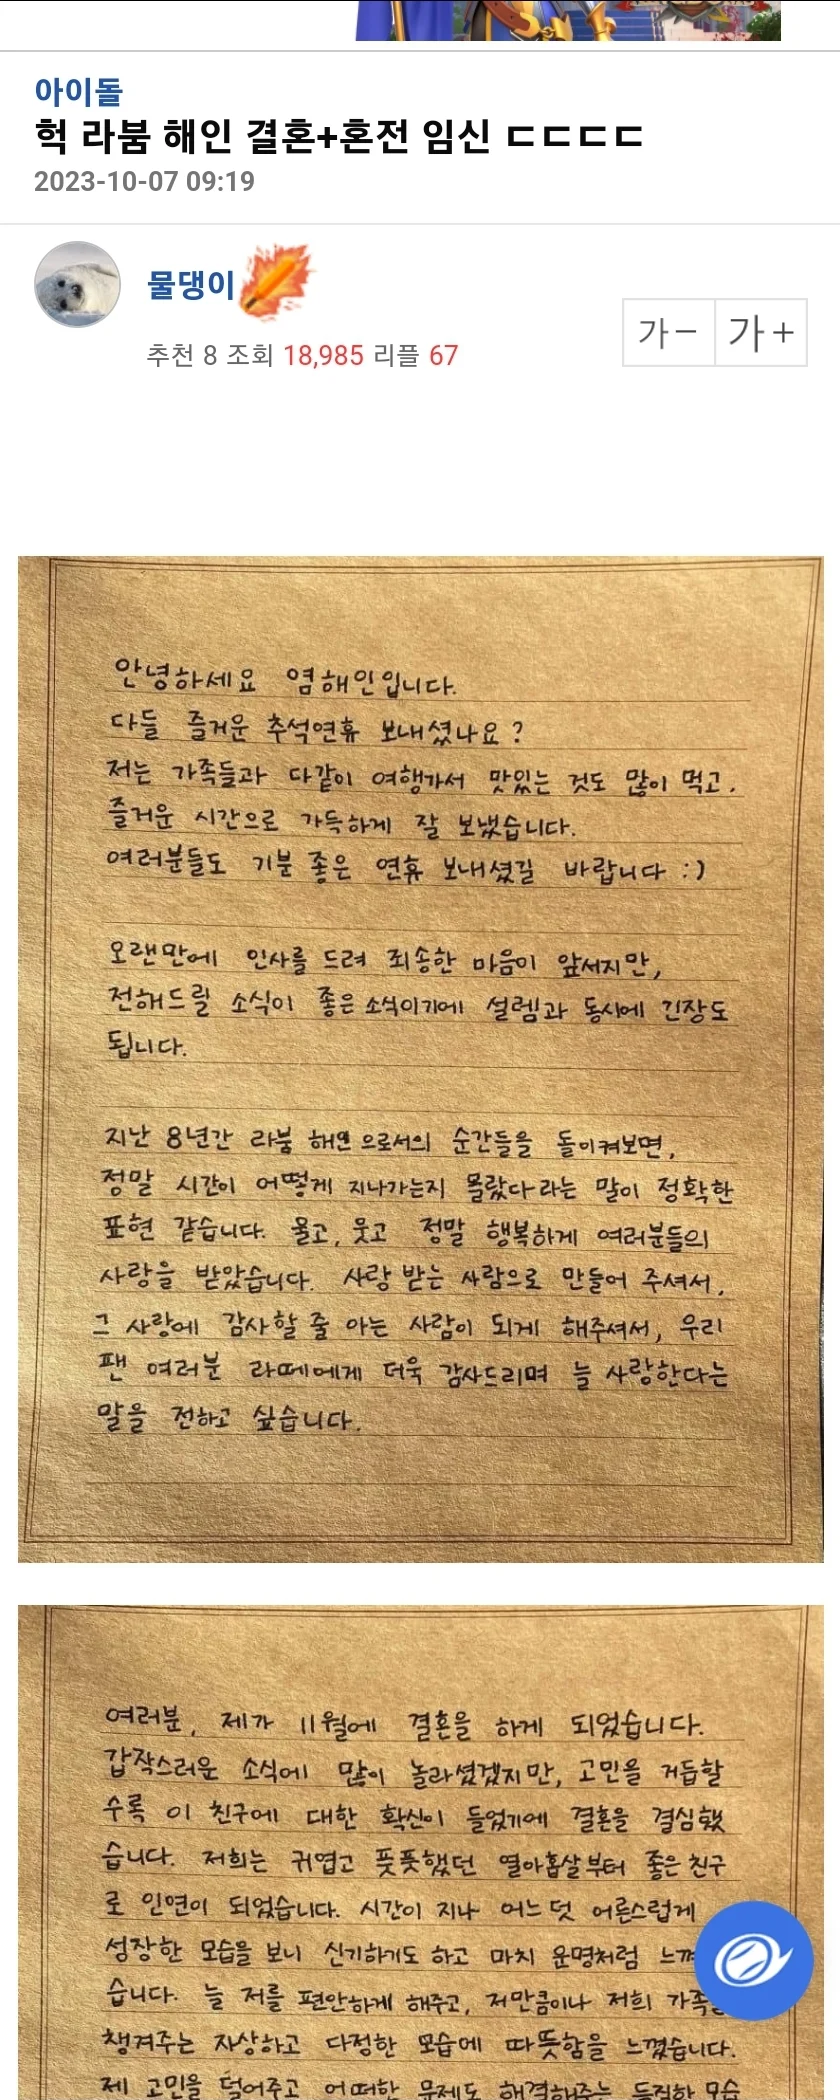 아이돌
헉 라붐 해인 결혼+혼전 임신 ㄷㄷㄷㄷ
2023-10-07 09:19
물댕이
추천 8 조회 18,985 리플 67
가- 가+
안녕하세요 염해인입니다.
다들 즐거운 추석연휴 보내셨나요?
저는 가족들과 다같이 여행가서 맛있는 것도 많이 먹고,
즐거운 시간으로 가득하게 잘 보냈습니다.
여러분들도 기분 좋은 연휴 보내셨길 바랍니다 :)
오랜만에 인사를 드려 죄송한 마음이 앞서지만,
전해드릴 소식이 좋은 소식이기에 설렘과 동시에 긴장도
됩니다.
지난 8년간 라붐 해인으로서의 순간들을 돌이켜보면,
정말 시간이 어떻게 지나가는지 몰랐다라는 말이 정확한
표현 같습니다. 울고, 웃고 정말 행복하게 여러분들의
사랑을 받았습니다. 사랑 받는 사람으로 만들어 주셔서,
그 사랑에 감사할 줄 아는 사람이 되게 해주셔서, 우리
팬 여러분 라떼에게 더욱 감사드리며 늘 사랑한다는
말을 전하고 싶습니다.
여러분, 제가 11월에 결혼을 하게 되었습니다.
갑작스러운 소식에 많이 놀라셨겠지만, 고민을 거듭할
수록 이 친구에 대한 확신이 들었기에 결혼을 결심했
습니다. 저희는 귀엽고 풋풋했던 열아홉살부터 좋은 친구
로 인연이 되었습니다. 시간이 지나 어느덧 어른스럽게
성장한 모습을 보니 신기하기도 하고 마치 운명처럼 느껴
습니다. 늘 저를 편안하게 해주고, 저만큼이나 저희 가족
챙겨주는 자상하고 다정한 모습에 따뜻함을 느꼈습니다.
제 고민을 덜어주고 어떠한 문제도 해결해주는 듬직한 모습